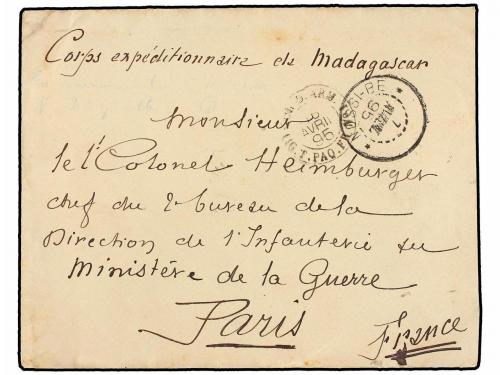 Corps expéditionnaire de Madagascar
Monsieur
le Lt Colonel Heimburger
chef du 2e bureau de la
Direction de l'Infanterie au
Ministère de la Guerre
Paris
France
AVRIL
95
NOSSI-BÉ
95